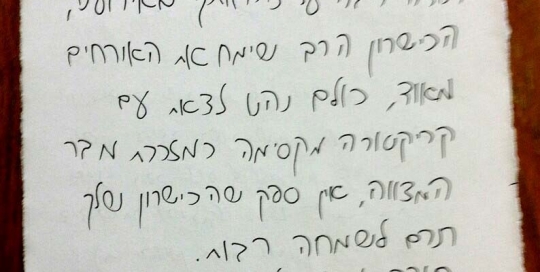 הכישרון הרב שימח את האורחים
מאוד, כולם נהנו לצאת עם
קריקטורה מקסימה כמזכרת מבר
המצווה, אין ספק שהכישרון שלך
תרם לשמחה רבות.